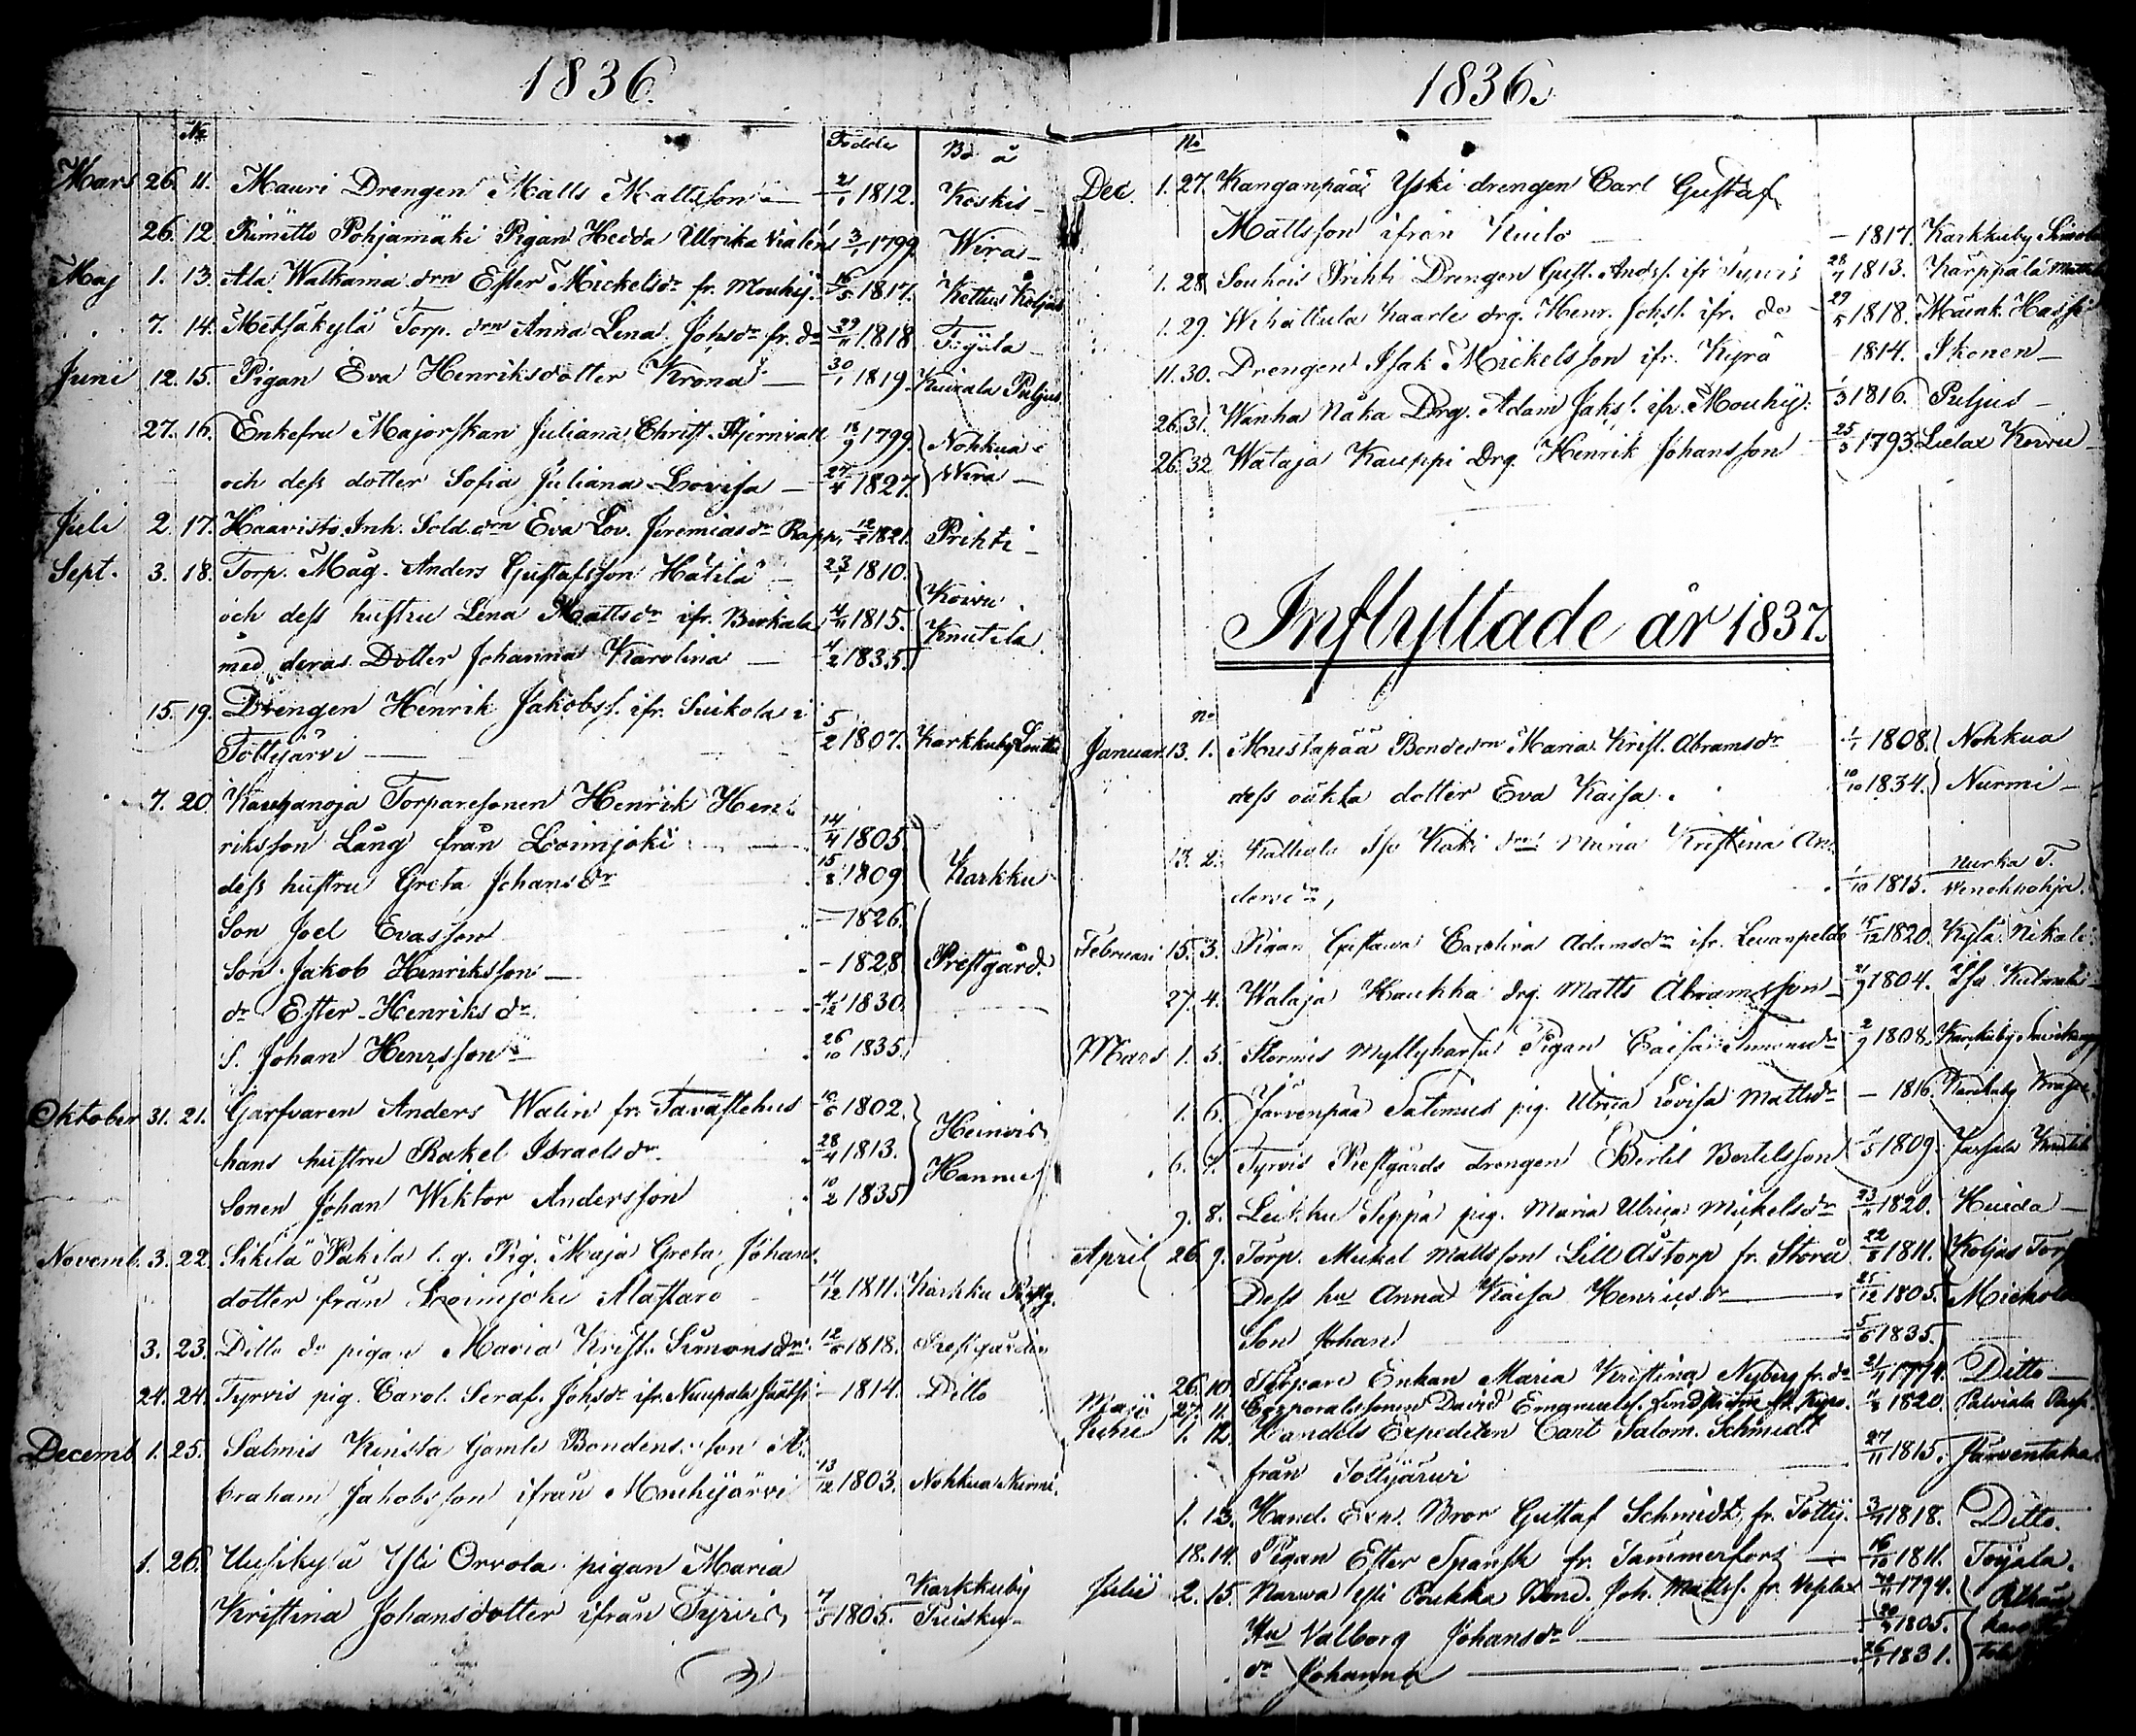 1836.
No Födde Bo å
Mars 26. 11. Mauri Drengen Matts Mattsson — 21/1 1812. Koskis —
26. 12. Rimitto Pohjamäki Pigan Hedda Ullrika Vialen 3/1 1799. Wira —
Maj 1. 13. Ala Walkama drn Ester Mickelsdr fr. Mouhij. 16/5 1817. Kettus Koljas
7. 14. Metsäkylä Torp. drn Anna Lena Johsdr fr. do 29/11 1818 Töyala —
Juni 12. 15. Pigan Eva Henriksdotter Krona — 30/1 1819. Kuivala Puljus
27. 16. Enkefru Majorskan Juliana Christ. Stjernvall 18/9 1799. Nohkua
och dess dotter Sofia Juliana Lovisa — 27/4 1827. Wira —
Juli 2. 17. Haavisto Inh. Sold. drn Eva Lov. Jeremiasdr Rapp, 12/2 1821. Prihti —
Sept. 3. 18. Torp. Måg. Anders Gustafsson Hatila — 23/1 1810.
och dess hustru Lena Mattsdr ifr. Birkala 4/11 1815. Koivu
med deras Dotter Johanna Karolina — 4/2 1835. Knutila.
15. 19. Drengen Henrik Jakobss. ifr. Suikola i
Tottijärvi — 5/2 1807. Karkkuby
7. 20. Torparesonen Henrik Hen-
riksson Lång från Loimjoki 14/4 1805
dess hustru Greta Johansdr 15/8 1809 Karkku
Son Joel Evasson — 1826.
Son Jakob Henriksson — — 1828 Prestgård.
dr Ester Henriksdr 4/12 1830.
S. Johan Henrsson — 26/10 1835.
Oktober 31. 21. Garfvaren Anders Walin fr. Tavastehus 10/6 1802.
hans hustru Rakel Israelsdr 28/4 1813. Heinois
Sonen Johan Wiktor Andersson 10/2 1835 Hannu
Novemb. 3. 22. Sikilä Pakila l. g. Pig. Maja Greta Johans-
dotter från Loimjoki Alastaro 14/12 1811. Karkku Prestg.
3. 23. Ditto do pigan Maria Krist. Simonsdr 12/6 1818. Prestgården
24. 24. Tyrvis pig. Carol. Seraf. Johsdr ifr. Nuupala — 1814. Ditto
Decemb. 1. 25. Salmis Kinsta Gamle Bondens son A-
braham Jakobsson ifrån Mouhijärvi 13/12 1803. Nohkua Nurmi.
1. 26. Uusikylä Yli Orvola pigan Maria
Kristina Johansdotter ifrån Tyrvis, 7/5 1805. Karkkuby
1836.
No
Dec. 1. 27. Kanganpää Yski drengen Carl Gustaf
Mattsson ifrån — 1817. Karkkuby
1. 28. Prihti Drengen Gust. Andss. ifr Tyrvis 28/7 1813. Kärppälä
1. 29. Wihattula Kaarle drg. Henr. Johss. ifr. do 29/5 1818.
11. 30. Drengen Isak Mickelsson ifr. Kyrö — 1814. Ikonen —
26. 31. Wanha Näkä Drg. Adam Jakss. ifr. Mouhij: 1/3 1816. Puljus —
26. 32. Wataja Kauppi Drg. Henrik Johansson 25/3 1793. Lielax Koivu —
Inflyttade år 1837.
No
Januari 13. 1. Mustapää Bondedrn Maria Krist. Abramsdr 1/1 1808. Nohkua
dess oäkta dotter Eva Kaisa. 10/10 1834. Nurmi —
13. 2. Iso drn Maria Kristina An-
dersdr, 1/10 1815.
Februari 15. 3. Pigan Gustava Carolina Adamsdr ifr. Levanpelto 15/12 1820. Kylä Nikali
27. 4. Wataja Kaukka drg. Matts Abramsson — 21/9 1804.
Mars 1. 5. Stormis Myllyharju Pigan Caisa Simonsdr 2/9 1808. Karkuby
1. 6. Järvenpää pig. Ulrica Lovisa Mattsdr — 1816. Karkuby
6. 7. Tyrvis Prestgårds drengen Bertil Bertilsson 1809.
9. 8. Seppä pig. Maria Ulrica Mickelsdr 23/1 1820. Huida —
April 26. 9. Torp. Mickel Mattsson Lill Åstorp fr. Storå 22/8 1811. Koljas Torp
Dess hu Anna Kaisa Henricsdr — 25/12 1805.
Son Johan 5/6 1835.
26. 10. Torpare Enkan Maria Kristina Nyberg fr. do 21/4 1774. Ditto —
Maji 27. 11. Corporalssonen David Emanuelss. 1820.
Juni 1. 12. Handels Expediten Carl Salom. Schmidt
från Tottijärvi 27/11 1815.
1. 13. Hand. Exp. Bror Gustaf Schmidt fr. Tottij. 3/4 1818. Ditto.
18. 14. Pigan Ester Spansk fr. Tammerfors — 16/10 1811. Töyala.
Julii 2. 15. Narwa Yli Poukka Bond. Joh. Mattss. fr. Vesilax 1794.
Hu Valborg Johansdr — 1805.
dr Johanna — 26/1 1831.